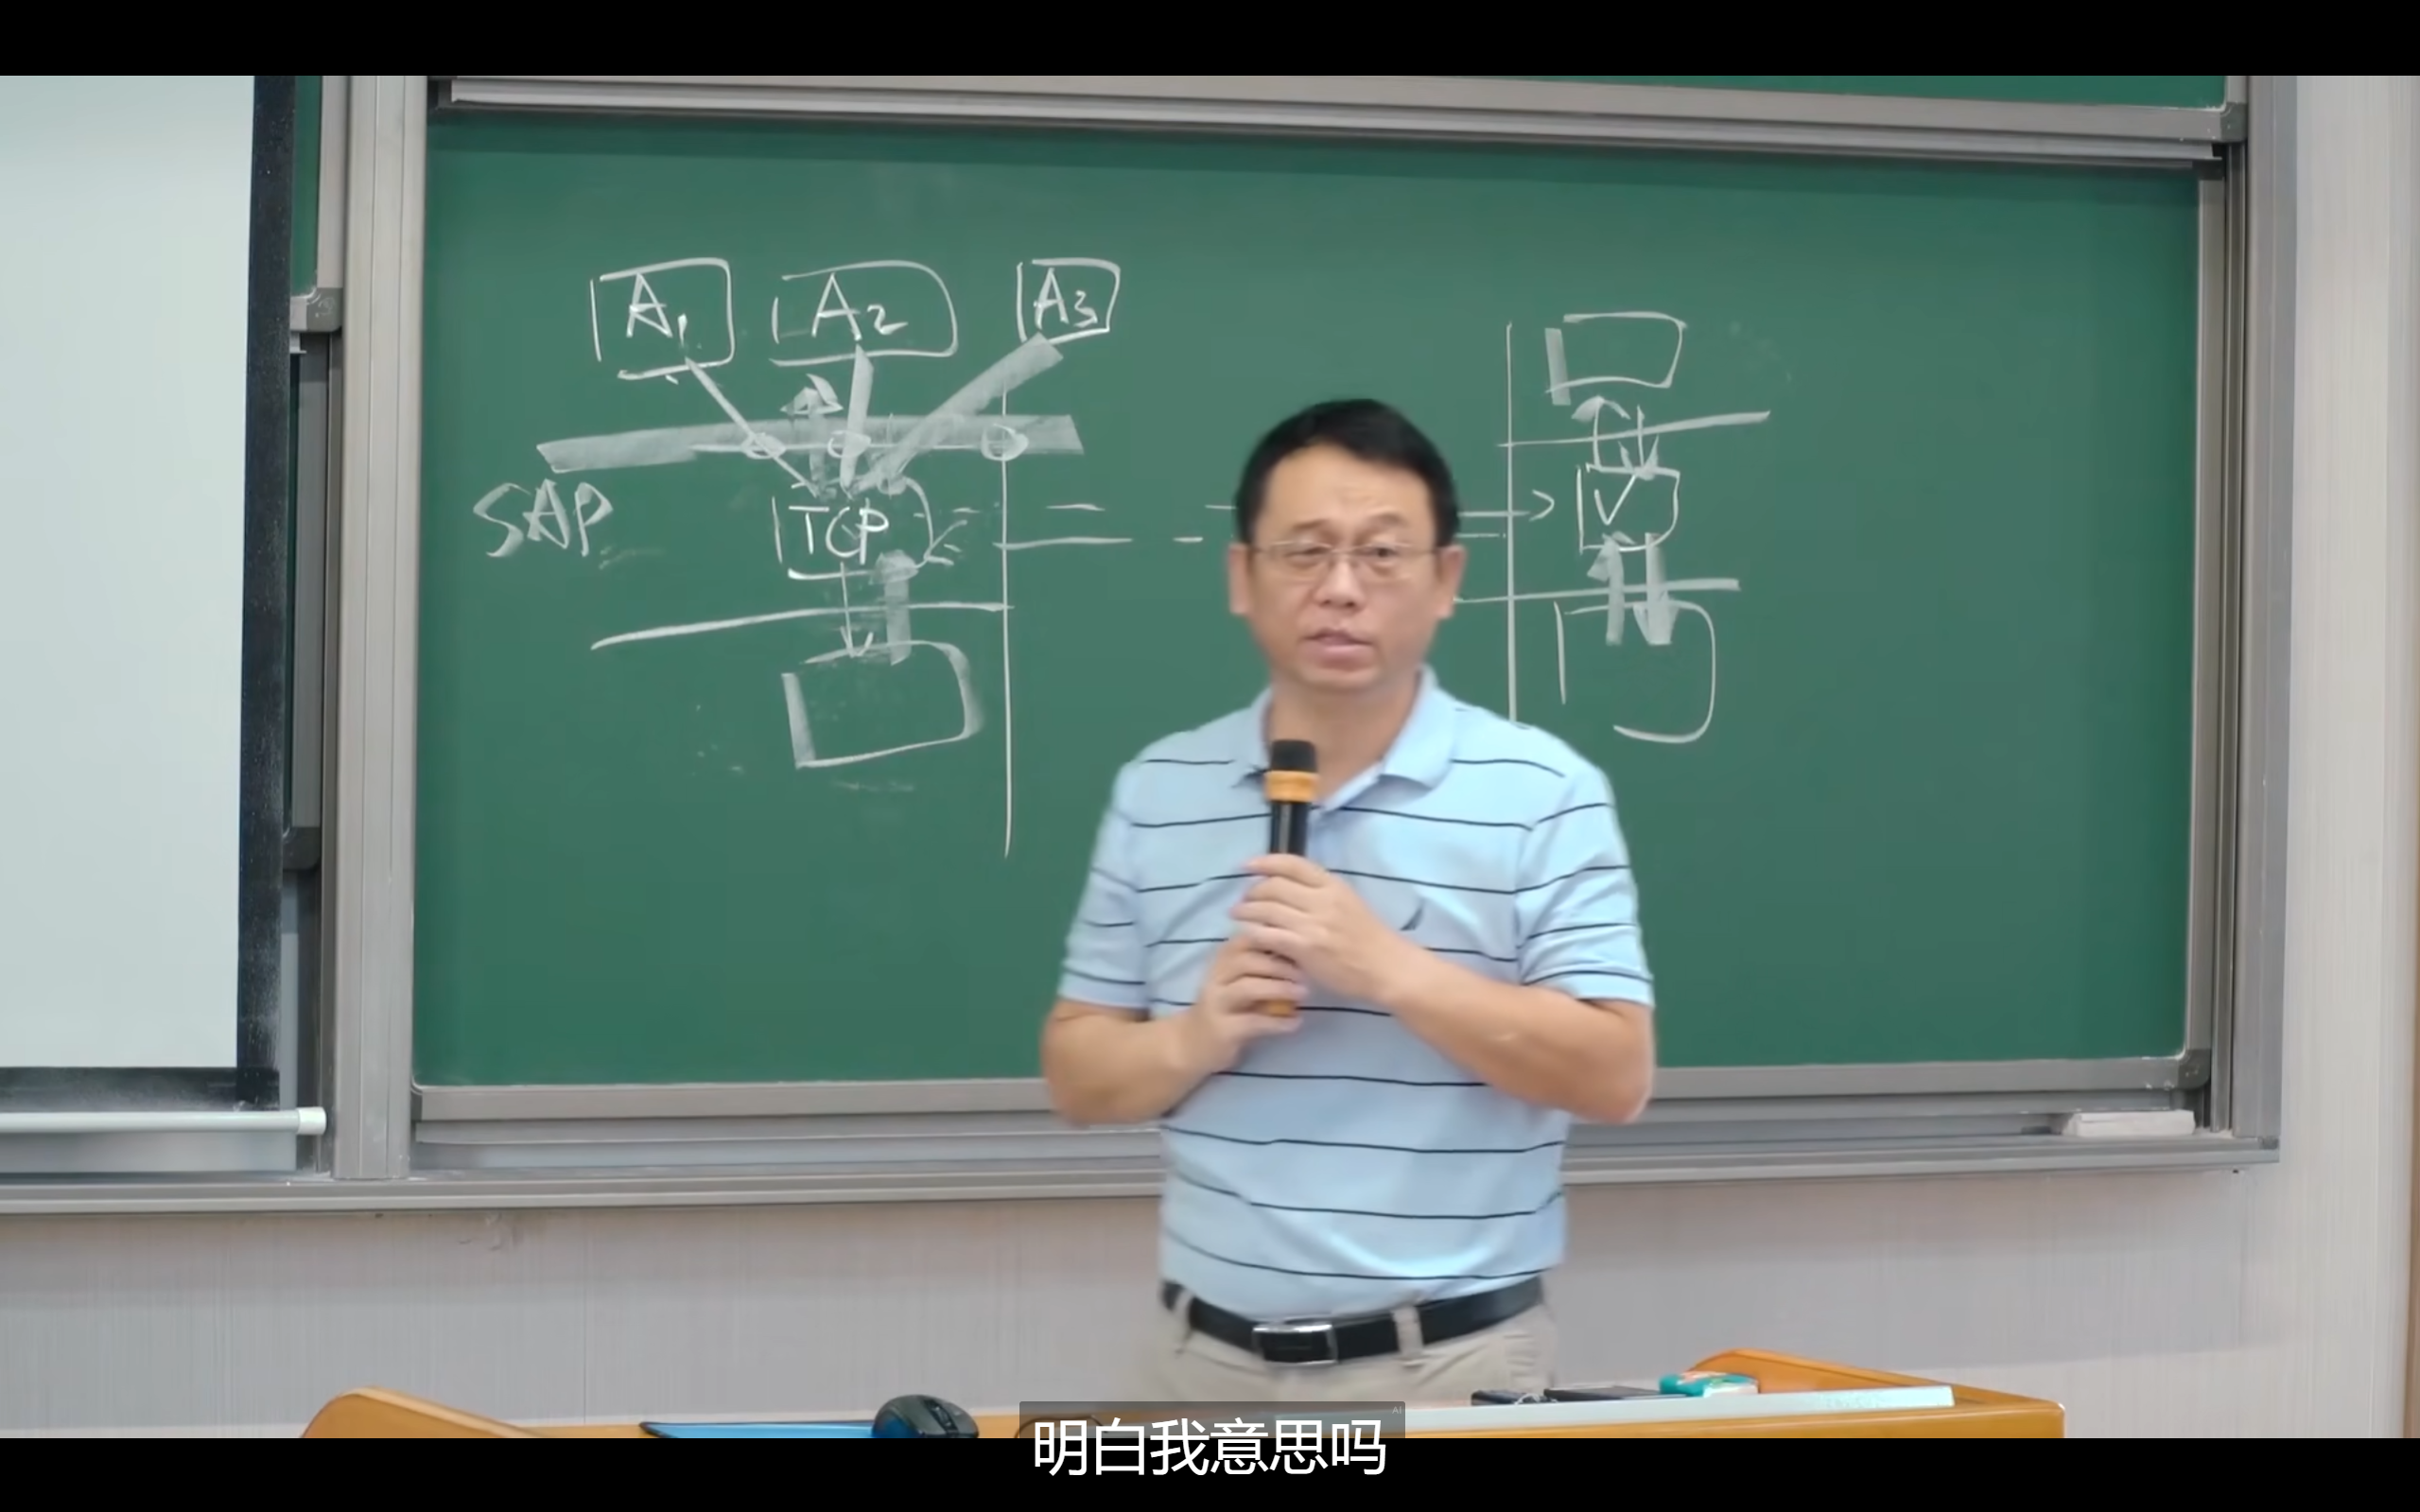 A1 A2 A3
SAP
TCP
明白我意思吗